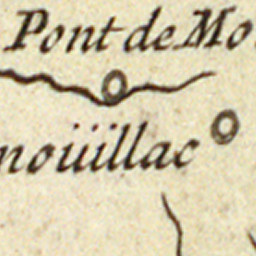 Pont de Mo
noüillac